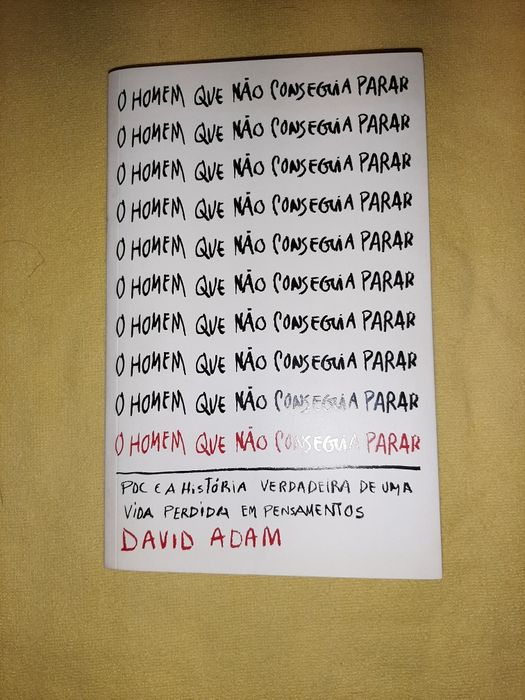 O HOMEM QUE NÃO CONSEGUIA PARAR
O HOMEM QUE NÃO CONSEGUIA PARAR
O HOMEM QUE NÃO CONSEGUIA PARAR
O HOMEM QUE NÃO CONSEGUIA PARAR
O HOMEM QUE NÃO CONSEGUIA PARAR
O HOMEM QUE NÃO CONSEGUIA PARAR
O HOMEM QUE NÃO CONSEGUIA PARAR
O HOMEM QUE NÃO CONSEGUIA PARAR
O HOMEM QUE NÃO CONSEGUIA PARAR
O HOMEM QUE NÃO CONSEGUIA PARAR
POC E A HISTÓRIA VERDADEIRA DE UMA
VIDA PERDIDA EM PENSAMENTOS
DAVID ADAM